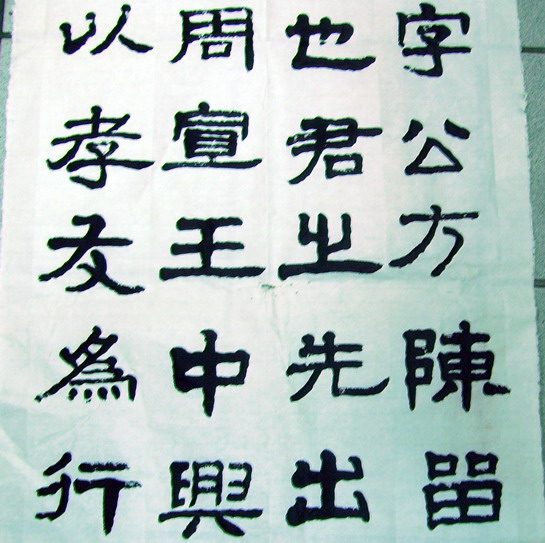 字公方陳留
也君之先出
周宣王中興
以孝友為行